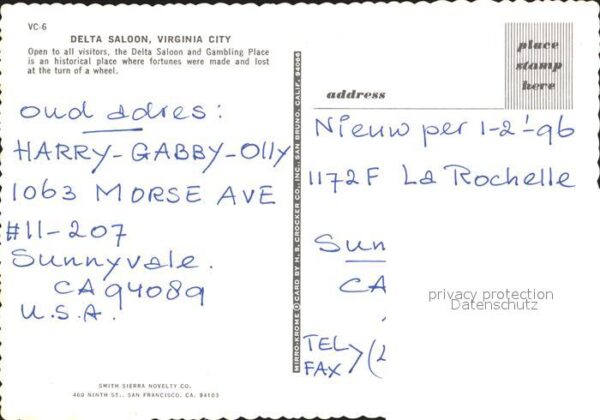 VC-6
DELTA SALOON, VIRGINIA CITY
Open to all visitors, the Delta Saloon and Gambling Place
is an historical place where fortunes were made and lost
at the turn of a wheel.
oud adres:
HARRY-GABBY-Olly
1063 MORSE AVE
#11-207
Sunnyvale.
CA 94089
U.S.A.
SMITH SIERRA NOVELTY CO.
400 NINTH ST., SAN FRANCISCO, CA. 94103
MIRRO-KROME ® CARD BY H. S. CROCKER CO., INC., SAN BRUNO, CALIF. 94066
place
stamp
here
address
Nieuw per 1-2-'96
1172F La Rochelle
Sun
CA
TEL
FAX >(2
privacy protection
Datenschutz